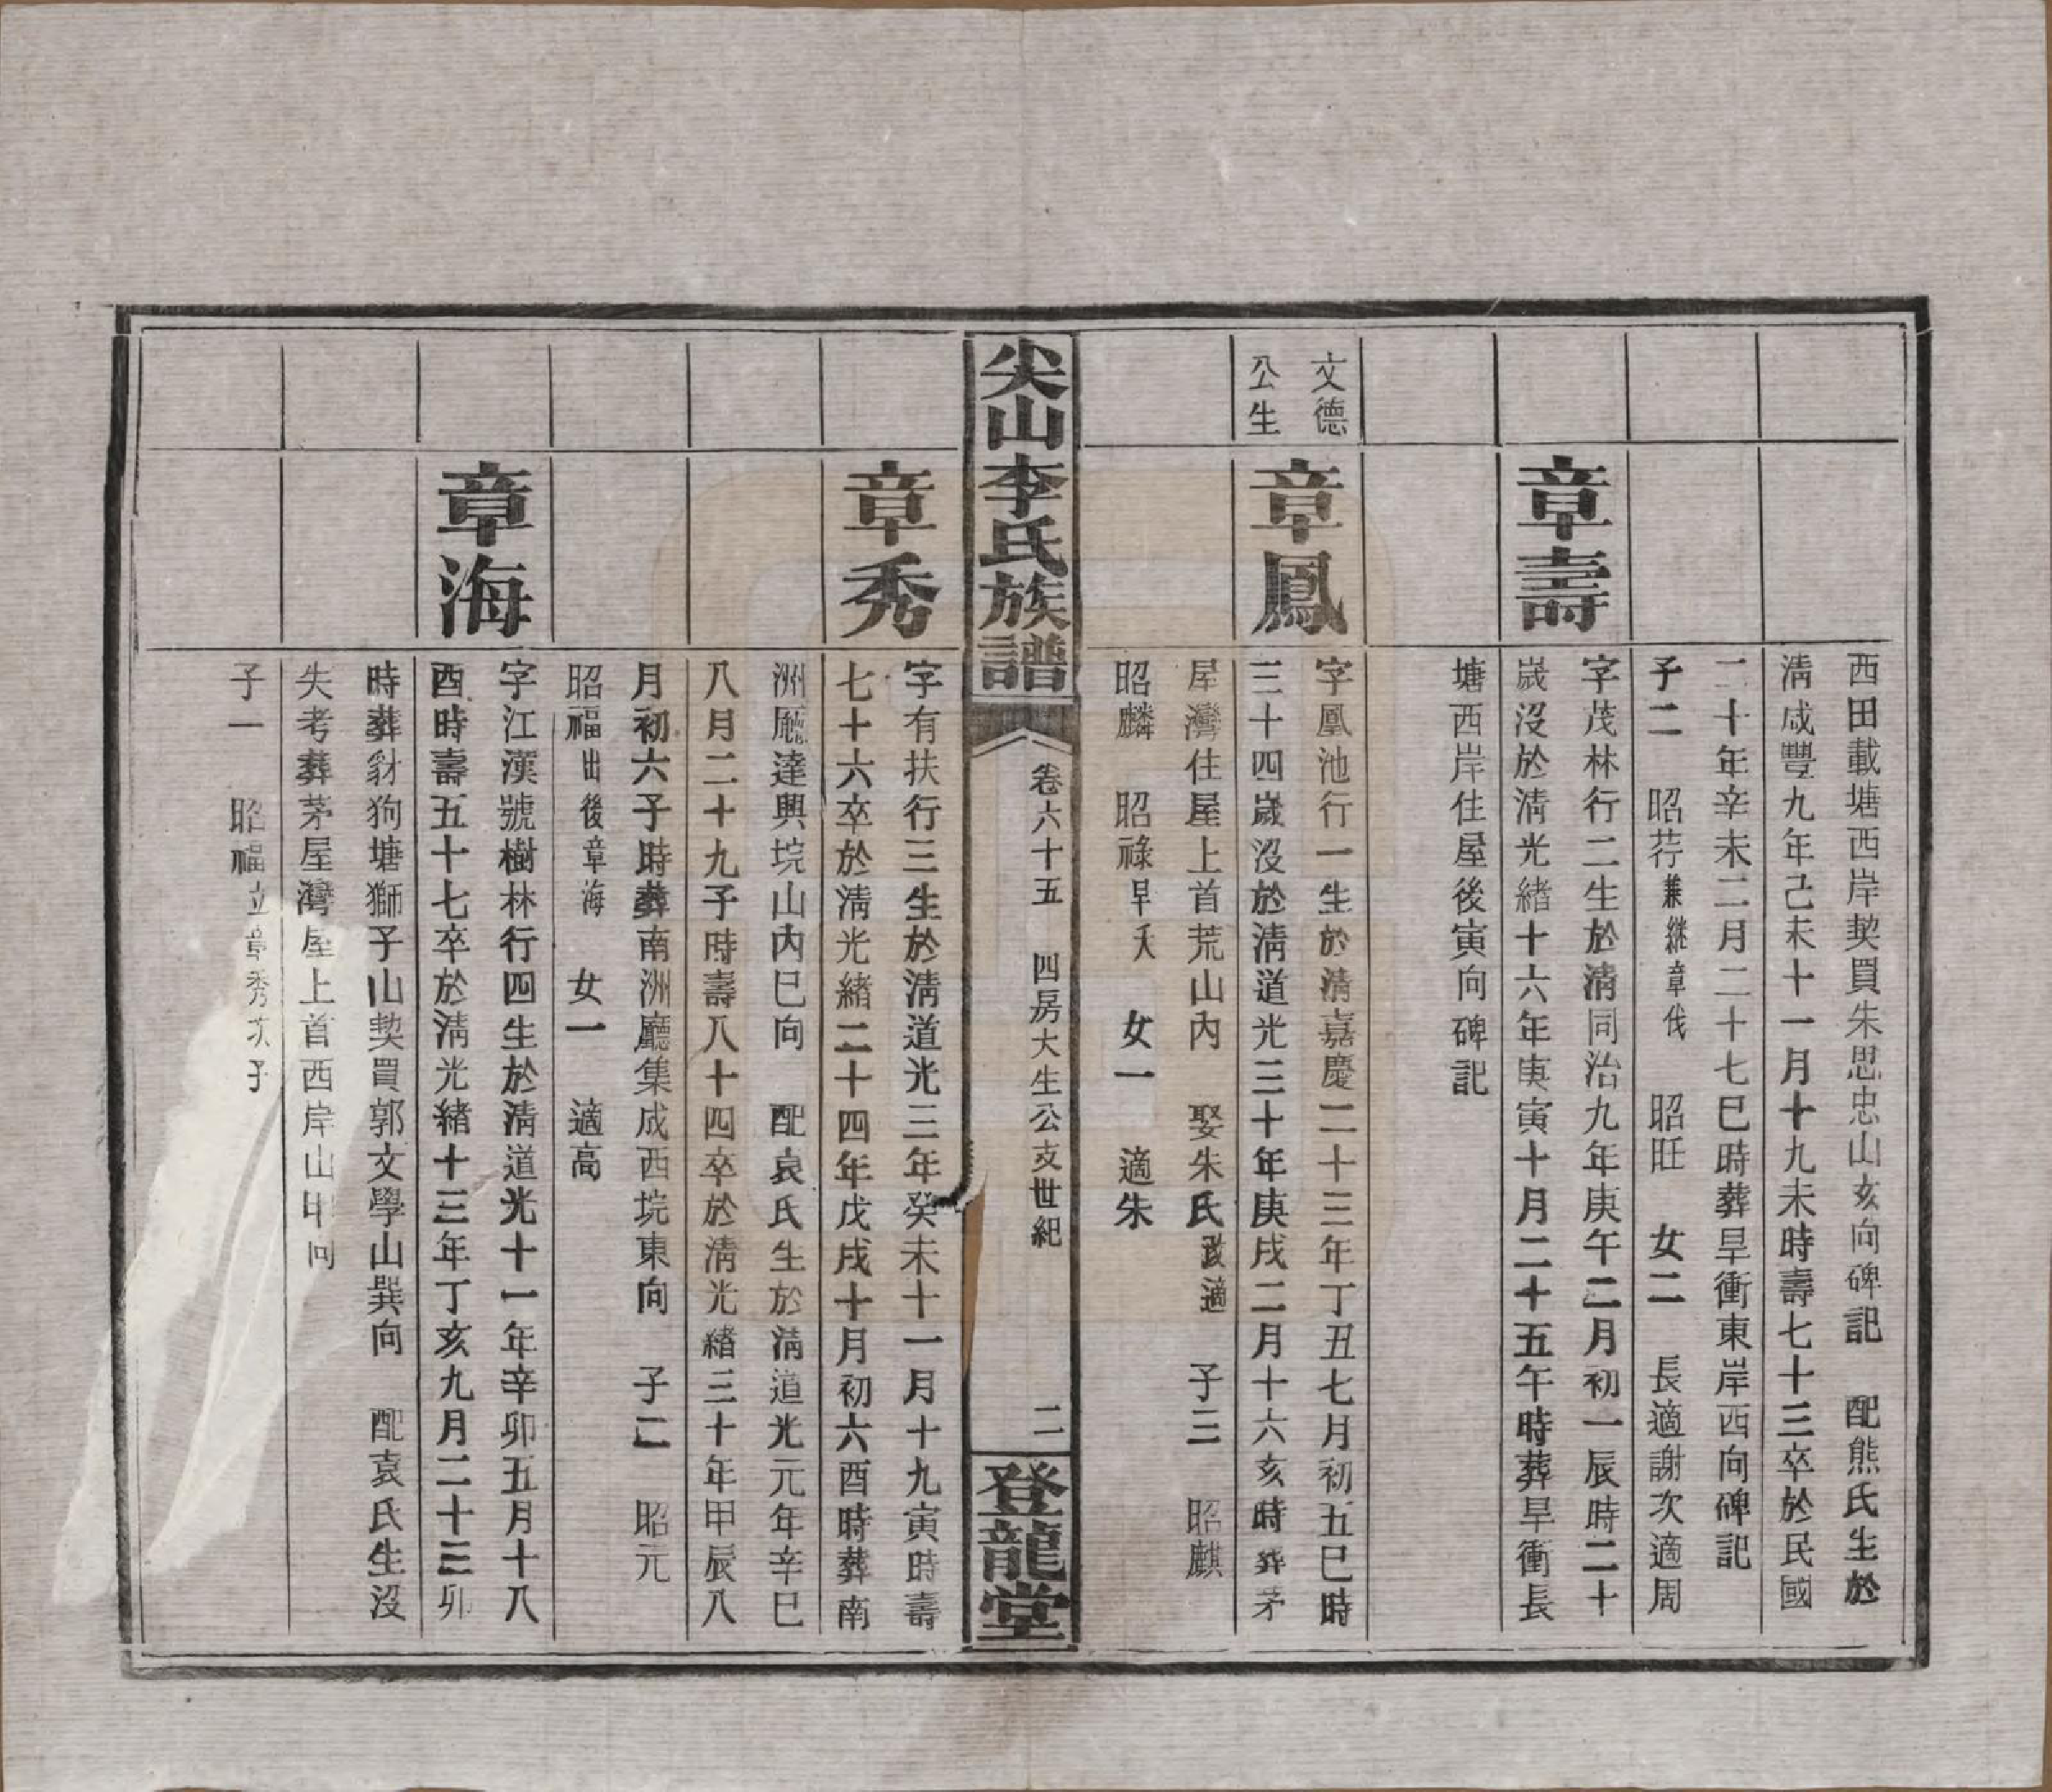 西田載塘西岸契買朱思忠山亥向碑記　配熊氏生於
清咸豐九年己未十一月十九未時壽七十三卒於民國
二十年辛未二月二十七巳時葬旱衝東岸西向碑記
子二　昭荐兼継章伐　昭旺　女二　長適謝次適周
章壽
字茂林行二生於清同治九年庚午二月初一辰時二十
歲沒於清光緒十六年庚寅十月二十五午時葬旱衝長
塘西岸住屋後寅向碑記
文德
公生
章鳳
字凰池行一生於清嘉慶二十三年丁丑七月初五巳時
三十四歲沒於清道光三十年庚戌二月十六亥時葬茅
屋灣住屋上首荒山內　娶朱氏改適　子三　昭麒
昭麟　昭祿早夭　女一　適朱
尖山李氏族譜
卷六十五　四房大生公支世紀
二
登龍堂
章秀
字有扶行三生於清道光三年癸未十一月十九寅時壽
七十六卒於清光緒二十四年戊戌十月初六酉時葬南
洲廳達興垸山內巳向　配袁氏生於清道光元年辛巳
八月二十九子時壽八十四卒於清光緒三十年甲辰八
月初六子時葬南洲廳集成西垸東向　子二　昭元
昭福出後章海　女一　適高
章海
字江漢號樹林行四生於清道光十一年辛卯五月十八
酉時壽五十七卒於清光緒十三年丁亥九月二十三卯
時葬豺狗塘獅子山契買郭文學山巽向　配袁氏生沒
失考葬茅屋灣屋上首西岸山向
子一　昭福立章秀次子